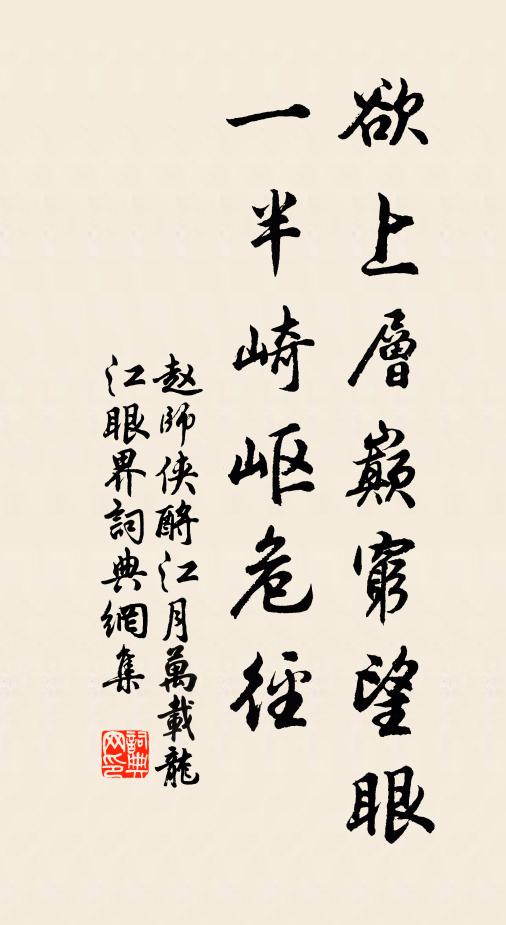 欲上層巔窮望眼
一半崎岖危徑
赵師侠酹江月萬載龍
江眼界詞典網集
詞典网印